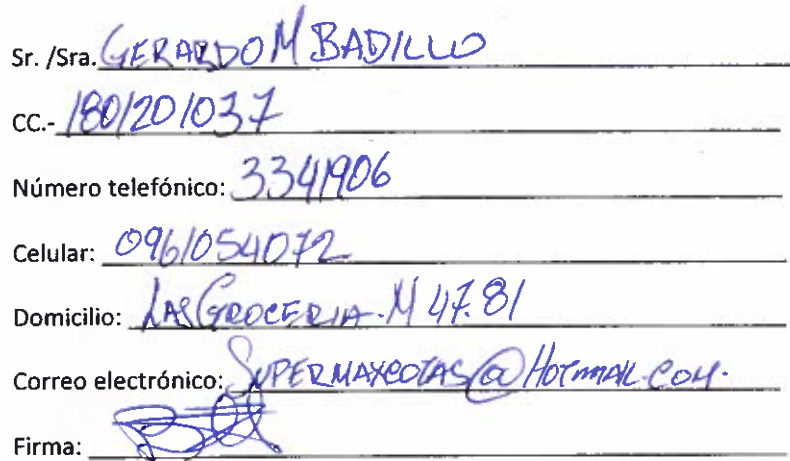 Sr. /Sra. GERARDO M BADILLO
CC.- 1801201037
Número telefónico: 3341906
Celular: 0961054072
Domicilio: LAS GROCERIA. M 47.81
Correo electrónico: SUPERMAXCOTAS@HOTMAIL.COM.
Firma: